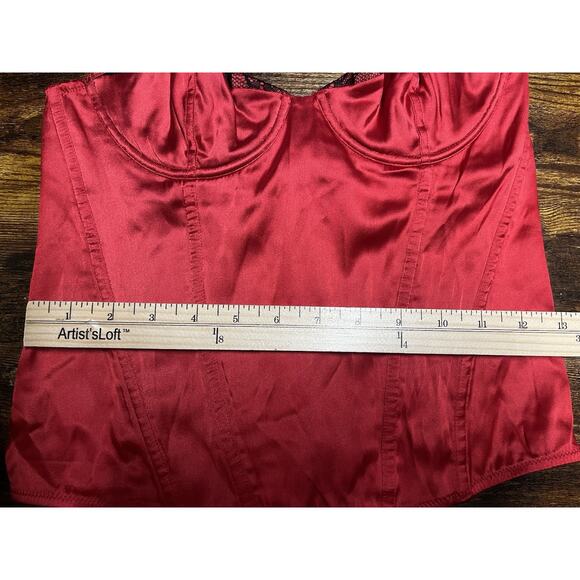 1 2 3 4 5 6 7 8 9 10 11 12 13
Artist'sLoft™ 1/8 1/4 3